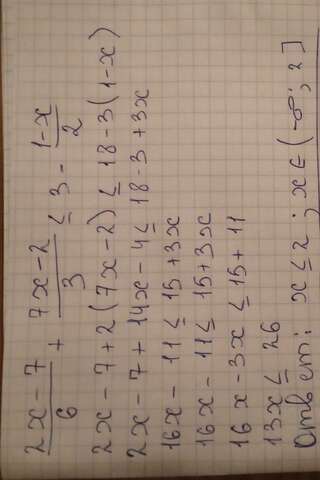 (2x-7)/6 + (7x-2)/3 ≤ 3 - (1-x)/2
2x-7+2(7x-2) ≤ 18-3(1-x)
2x-7+14x-4 ≤ 18-3+3x
16x-11 ≤ 15+3x
16x-11 ≤ 15+3x
16x-3x ≤ 15+11
13x ≤ 26
Ответ: x ≤ 2; x∈(-∞; 2]